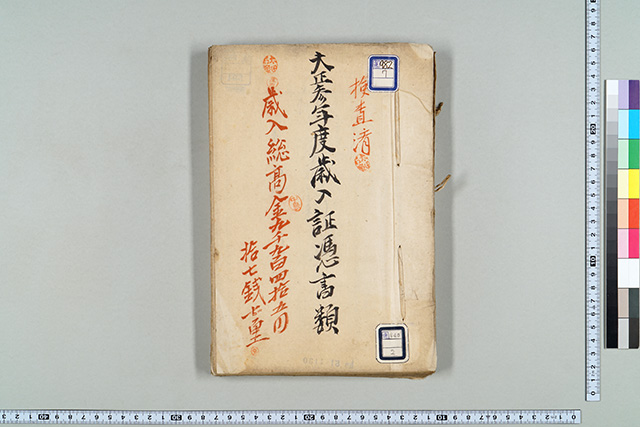 検査済
大正参年度歳入証憑書類
歳入総高金九千九百四拾五円
拾七銭七厘
982
7